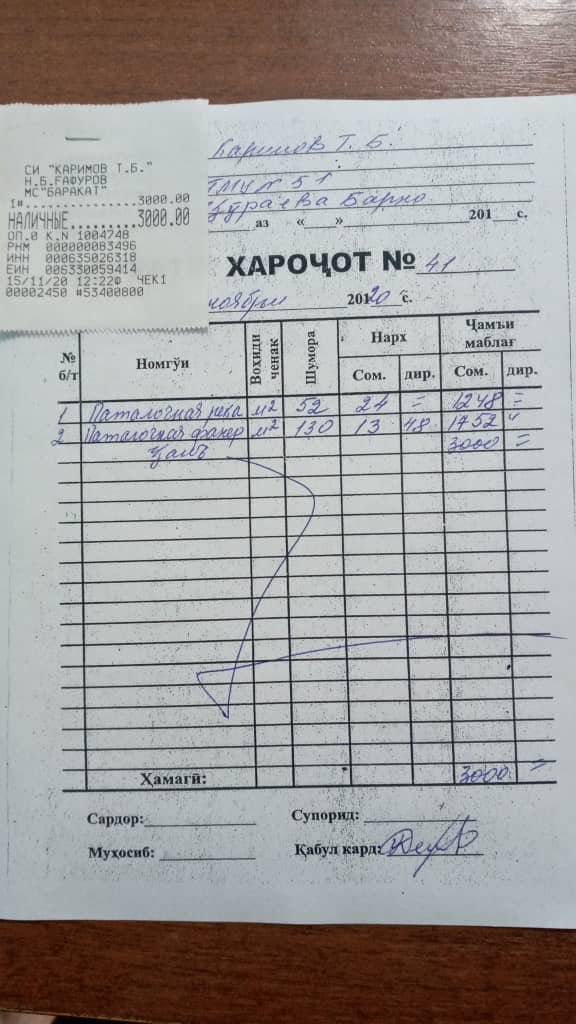 СИ "КАРИМОВ Т.Б."
Н.Б.ГАФУРОВ
МС"БАРАКАТ"
1#..................3000.00
НАЛИЧНЫЕ.........3000.00
ОП.0 К.N 1004748
РНМ 000000083496
ИНН 000635026318
ЕИН 006330059414
15/11/20 12:22Ф ЧЕК1
00002450 #53400800
Каримов Т. Б.
№ 51
Барно
аз «___»________ 201__с.
ХАРОҶОТ № 41
ноябри 20120 с.
№ б/т Номгӯи Воҳиди ченак Шумора Нарх Ҷамъи маблағ
Сом. дир. Сом. дир.
1 Паталочная река м2 52 24 = 1248 =
2 Паталочная фанер м2 130 13 48 1752 "
Ҷамъ 3000 =
Ҳамагӣ: 3000 =
Сардор: Супорид:
Муҳосиб: Қабул кард: